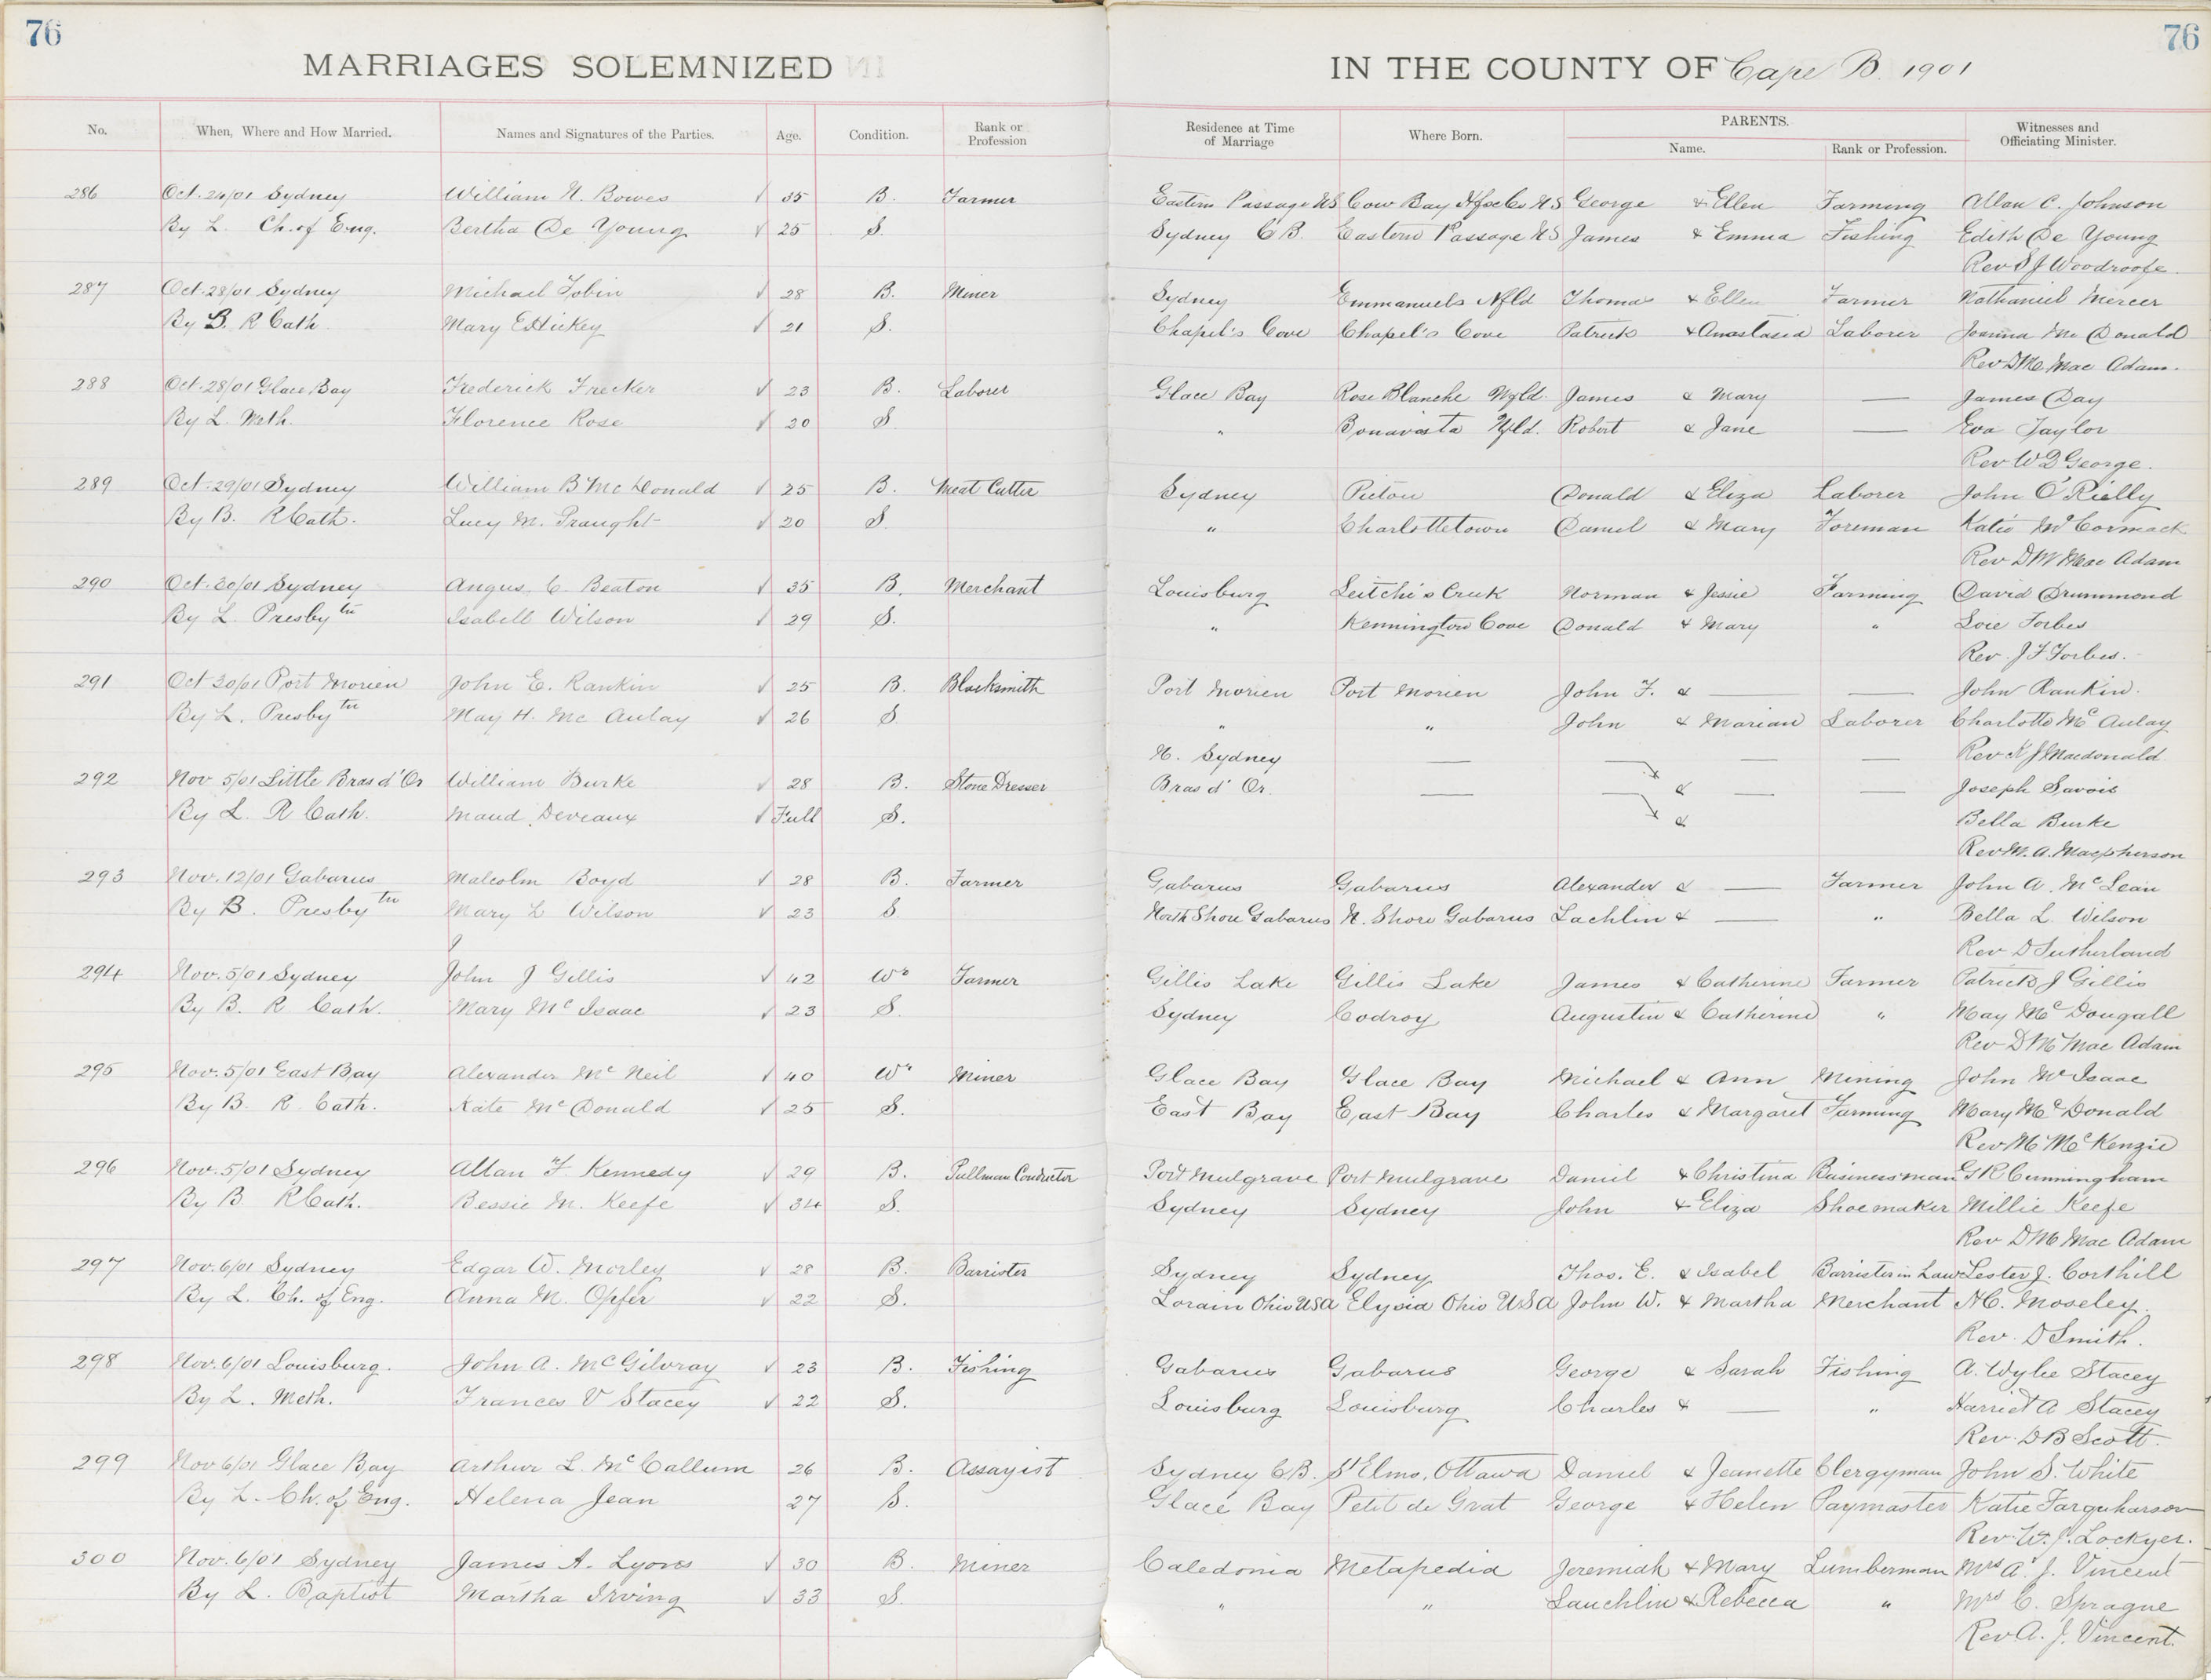 76
76
MARRIAGES SOLEMNIZED
IN THE COUNTY OF Cape B. 1901
No. When, Where and How Married. Names and Signatures of the Parties. Age. Condition. Rank or Profession Residence at Time of Marriage Where Born. PARENTS. Name. Rank or Profession. Witnesses and Officiating Minister.
286 Oct. 24/01 Sydney William H. Bowes √ 35 B. Farmer Eastern Passage NS Cow Bay Hfx Co NS George & Ellen Farming Allan C. Johnson
By L. Ch. of Eng. Bertha De Young √ 25 S. Sydney C B. Eastern Passage NS James & Emma Fishing Edith De Young
Rev S J Woodroofe.
287 Oct. 28/01 Sydney Michael Tobin √ 28 B. Miner Sydney Emmanuels Nfld Thomas & Ellen Farmer Nathaniel Mercer
By B. R Cath. Mary E Hickey √ 21 S. Chapel's Cove Chapel's Cove Patrick & Anastasia Laborer Joanna Mc Donald
Rev D M Mac Adam.
288 Oct. 28/01 Glace Bay Frederick Frecker √ 23 B. Laborer Glace Bay Rose Blanche Nfld. James & Mary — James Day
By L. Meth. Florence Rose √ 20 S " Bonavista Nfld. Robert & Jane — Eva Taylor
Rev W D George.
289 Oct. 29/01 Sydney William B McDonald √ 25 B. Meat Cutter Sydney Pictou Donald & Eliza Laborer John O'Rielly
By B. R Cath. Lucy M. Praught √ 20 S. " Charlottetown Daniel & Mary Foreman Katie McCormack
Rev D M Mac Adam
290 Oct. 30/01 Sydney Angus C Beaton √ 35 B. Merchant Louisburg Leitchi's Creek Norman & Jessie Farming David Drummond
By L. Presbytn Isabell Wilson √ 29 S. " Kennington Cove Donald & Mary " Loie Forbes
Rev. J F Forbes.
291 Oct 30/01 Port Morien John E. Rankin √ 25 B. Blacksmith Port Morien Port Morien John F. & — — John Rankin.
By L. Presbytn May H. Mc Aulay √ 26 S " " John & Marian Laborer Charlotte McAulay
N. Sydney — — — — Rev J Macdonald
292 Nov 5/01 Little Bras d'Or William Burke √ 28 B. Stone Dresser Bras d'Or. — — & — — Joseph Savois
By L. R Cath. Maud Deveaux √ Full S. & Bella Burke
Rev M. A. Macpherson
293 Nov. 12/01 Gabarus Malcolm Boyd √ 28 B. Farmer Gabarus Gabarus Alexander & — Farmer John A. McLean
By B. Presbytn Mary L Wilson √ 23 S. North Shore Gabarus N. Shore Gabarus Lachlin & — " Bella L. Wilson
Rev D Sutherland
294 Nov. 5/01 Sydney John J Gillis √ 42 Wr Farmer Gillis Lake Gillis Lake James & Catherine Farmer Patrick J Gillis
By B. R Cath. Mary McIsaac √ 23 S. Sydney Codroy Augustin & Catherine " May McDougall
Rev D M Mac Adam
295 Nov. 5/01 East Bay Alexander McNeil √ 40 Wr Miner Glace Bay Glace Bay Michael & Ann Mining John McIsaac
By B. R. Cath. Kate McDonald √ 25 S. East Bay East Bay Charles & Margaret Farming Mary McDonald
Rev M McKenzie
296 Nov. 5/01 Sydney Allan F. Kennedy √ 29 B. Pullman Conductor Port Mulgrave Port Mulgrave Daniel & Christina Businessman G R Cunningham
By B R Cath. Bessie M. Keefe √ 34 S. Sydney Sydney John & Eliza Shoemaker Millie Keefe
Rev D M Mac Adam
297 Nov. 6/01 Sydney Edgar W. Morley √ 28 B. Barrister Sydney Sydney Thos. E. & Isabel Barrister in Law Lester J. Corthill
By L. Ch. of Eng. Anna M. Opfer √ 22 S. Lorain Ohio USA Elysia Ohio USA John W. & Martha Merchant H C. Moseley.
Rev. D Smith.
298 Nov. 6/01 Louisburg. John A. McGilvray √ 23 B. Fishing Gabarus Gabarus George & Sarah Fishing A. Wylie Stacey
By L. Meth. Frances V Stacey √ 22 S. Louisburg Louisburg Charles & — " Harriet A Stacey
Rev. D B Scott.
299 Nov 6/01 Glace Bay Arthur L. McCallum 26 B. Assayist Sydney C B. St Elmo, Ottawa Daniel & Jeanette Clergyman John S. White
By L. Ch. of Eng. Helena Jean 27 S. Glace Bay Petit de Grat George & Helen Paymaster Katie Farquharson
Rev. W. J. Lockyer.
300 Nov. 6/01 Sydney James A. Lyons √ 30 B. Miner Caledonia Metapedia Jeremiah & Mary Lumberman Mrs A. J. Vincent
By L. Baptist Martha Irving √ 33 S. " " Lauchlin & Rebecca " Mrs C. Sprague
Rev A. J. Vincent.